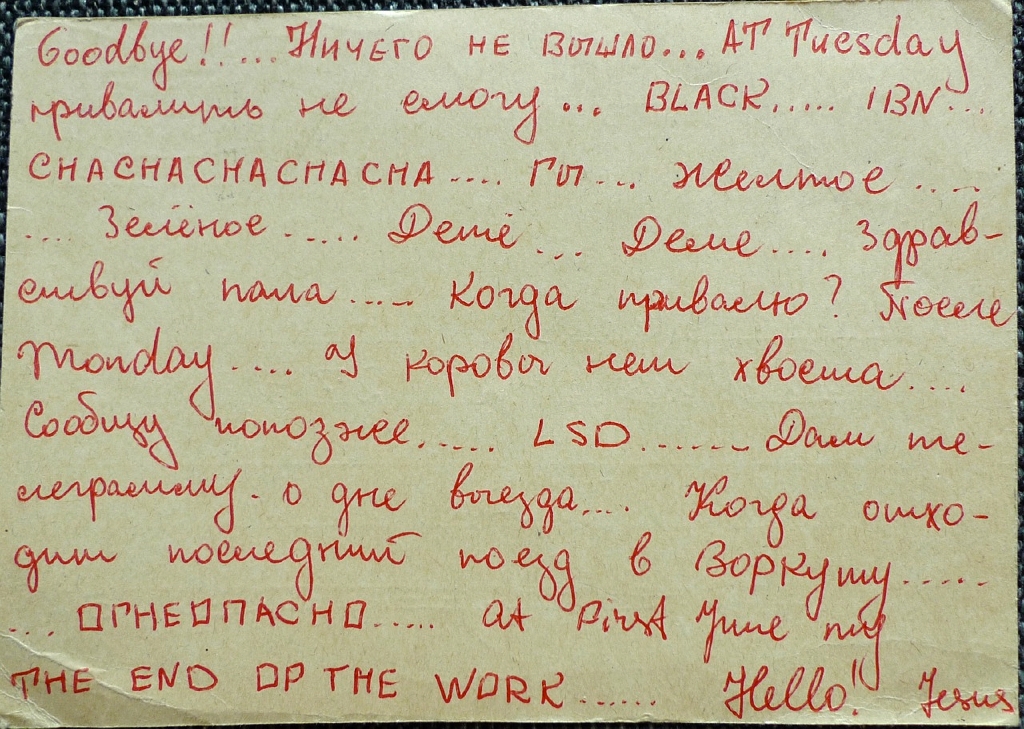 Goodbye!!... Ничего не вышло... AT Tuesday
привалить не смогу... BLACK..... IBN....
СНАСНАСНАСНАСНА.... Гы... Желтое ....
.... Зелёное ..... Дете... Деме.... Здрав-
ствуй папа..... Когда привалю? После
Monday.... У коровы нет хвоста....
Сообщу попозже..... LSD....... Дам те-
леграмму. о дне выезда.... Когда отхо-
дит последний поезд в Воркуту.....
... ОГНЕОПАСНО..... at First June my
THE END OP THE WORK...... Hello!! Jesus